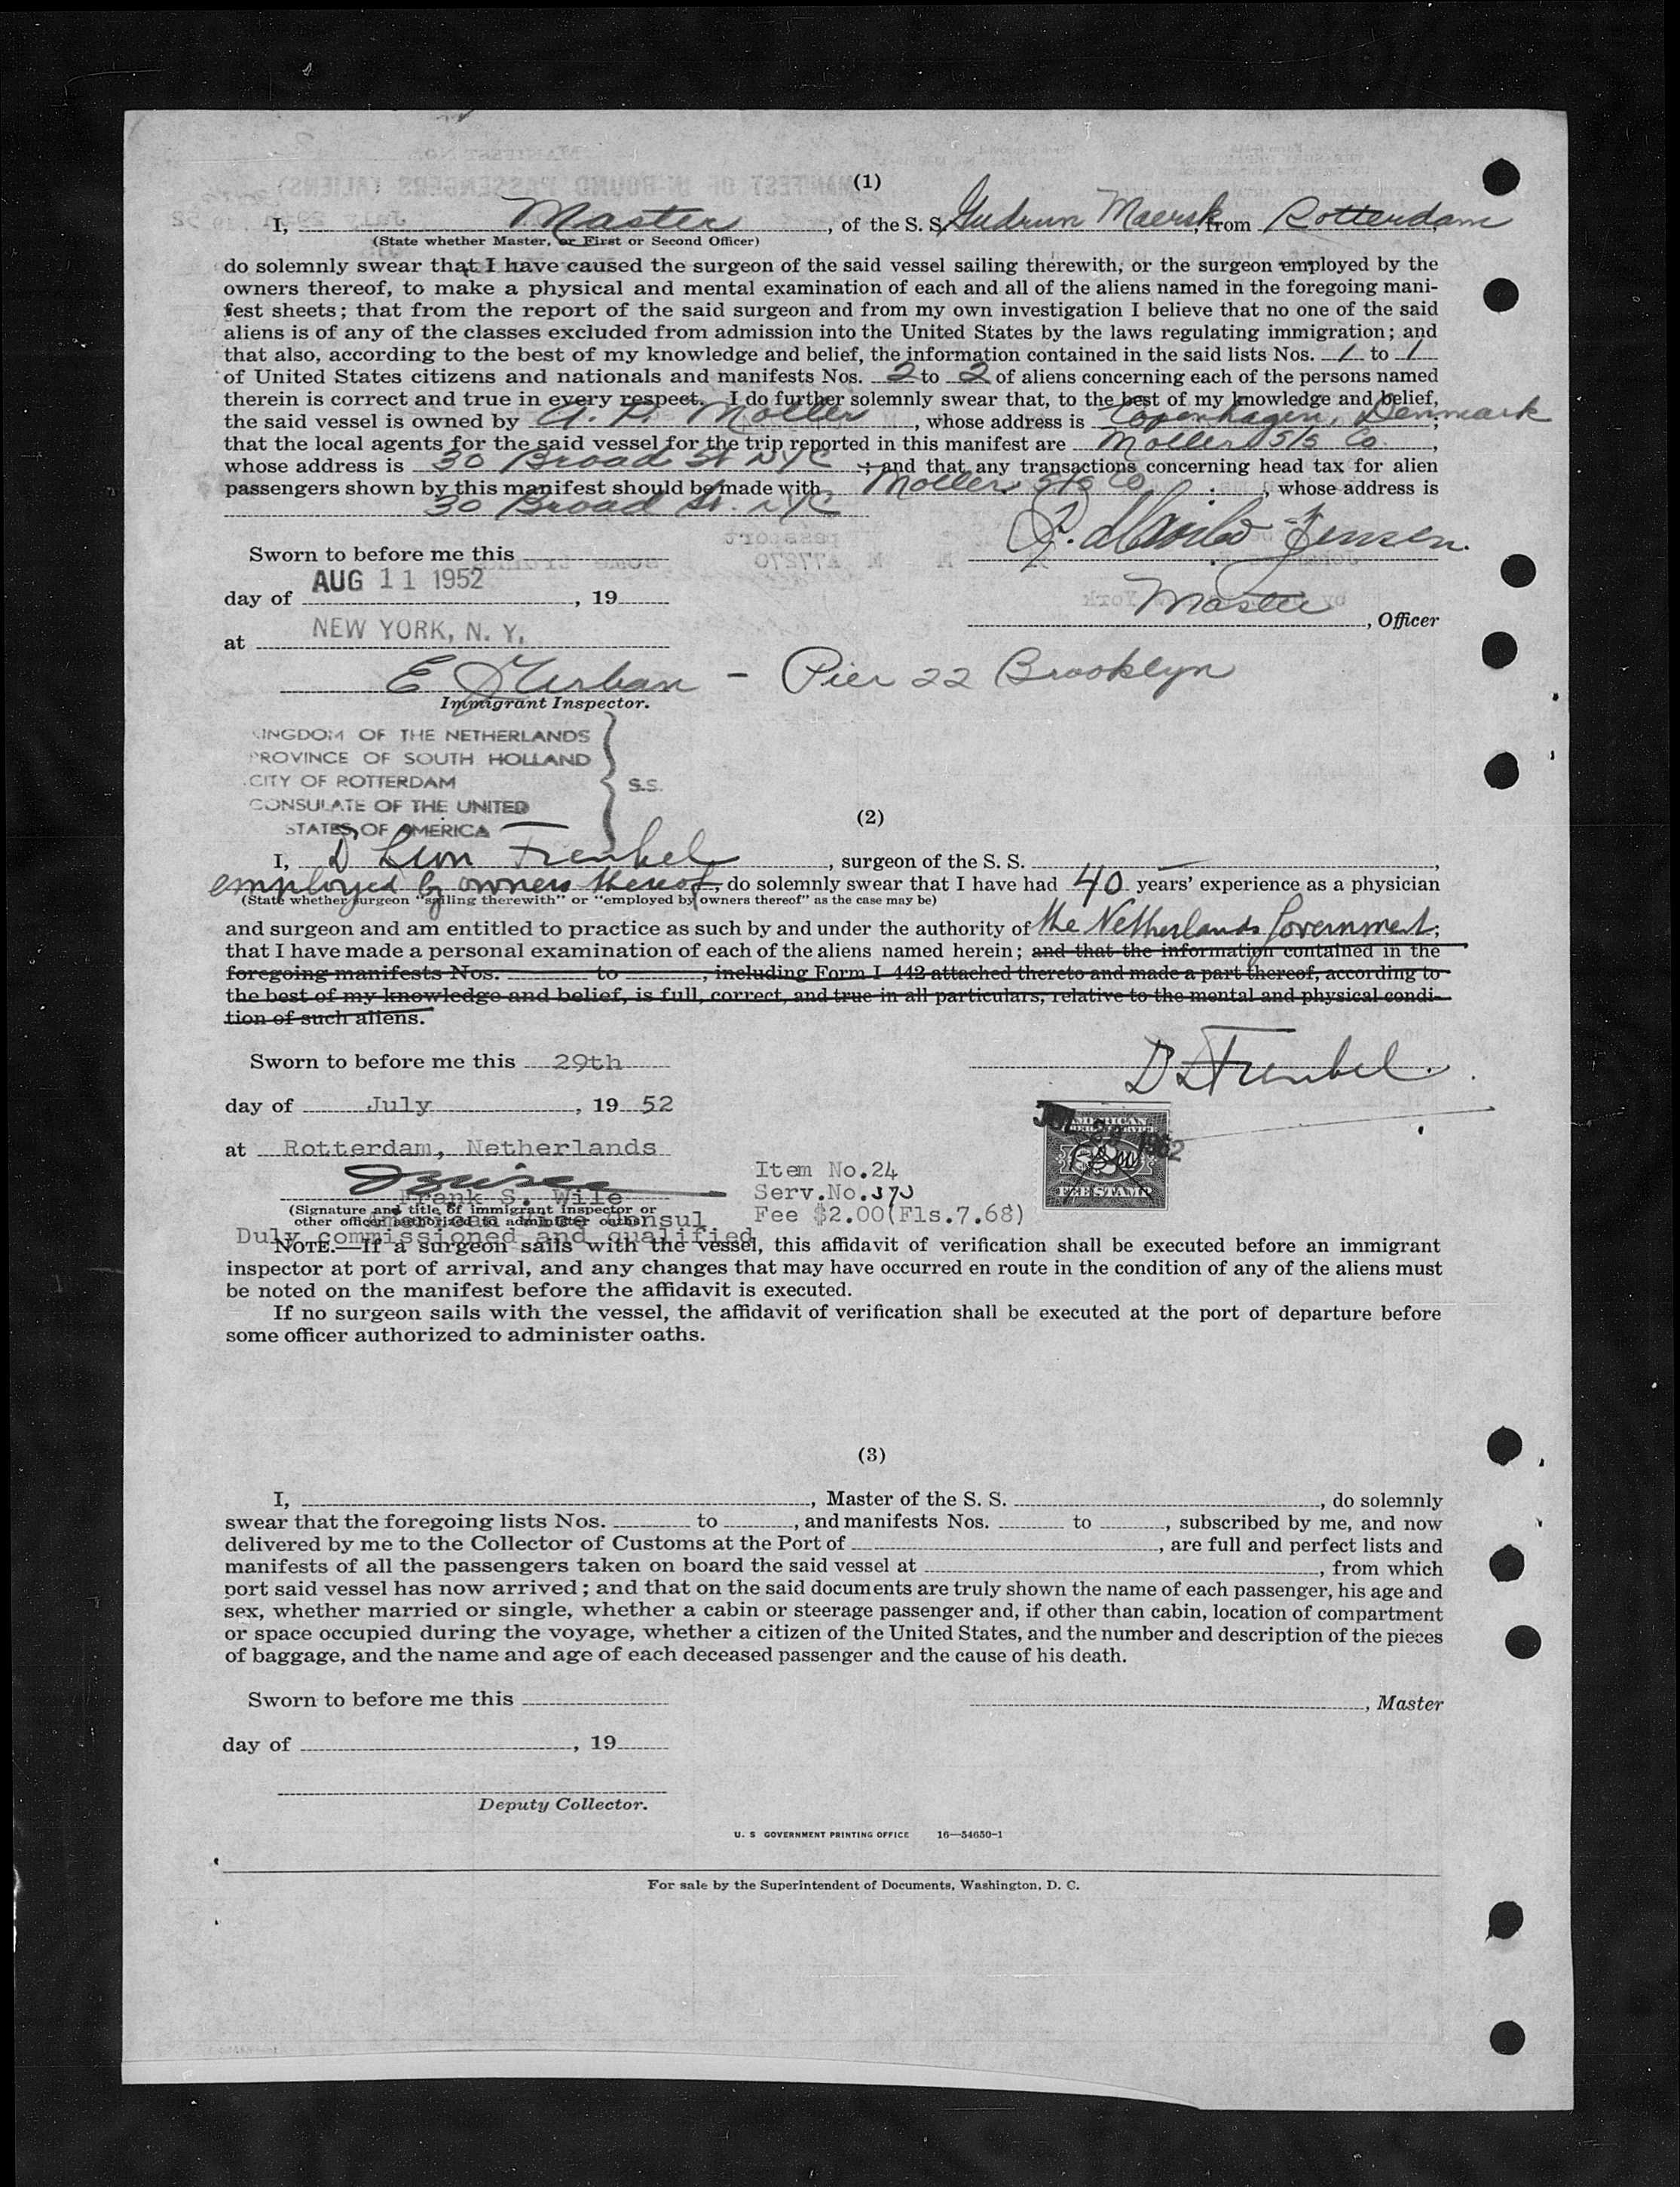 (1)
I, Master, of the S. S. Gudrun Maersk, from Rotterdam
(State whether Master, or First or Second Officer)
do solemnly swear that I have caused the surgeon of the said vessel sailing therewith, or the surgeon employed by the
owners thereof, to make a physical and mental examination of each and all of the aliens named in the foregoing mani-
fest sheets; that from the report of the said surgeon and from my own investigation I believe that no one of the said
aliens is of any of the classes excluded from admission into the United States by the laws regulating immigration; and
that also, according to the best of my knowledge and belief, the information contained in the said lists Nos. 1 to 1
of United States citizens and nationals and manifests Nos. 2 to 2 of aliens concerning each of the persons named
therein is correct and true in every respect. I do further solemnly swear that, to the best of my knowledge and belief,
the said vessel is owned by A. P. Moller, whose address is Copenhagen, Denmark;
that the local agents for the said vessel for the trip reported in this manifest are Moller S/S Co.,
whose address is 30 Broad St NYC; and that any transactions concerning head tax for alien
passengers shown by this manifest should be made with Moller S/S Co, whose address is
30 Broad St. NYC
Jensen.
Sworn to before me this
AUG 11 1952
day of , 19
Master, Officer
NEW YORK, N. Y.
at
E J Urban - Pier 22 Brooklyn
Immigrant Inspector.
KINGDOM OF THE NETHERLANDS
PROVINCE OF SOUTH HOLLAND
CITY OF ROTTERDAM S.S.
CONSULATE OF THE UNITED
STATES OF AMERICA
(2)
I, D Leon Frenkel, surgeon of the S. S. —,
employed by owners thereof, do solemnly swear that I have had 40 years' experience as a physician
(State whether surgeon "sailing therewith" or "employed by owners thereof" as the case may be)
and surgeon and am entitled to practice as such by and under the authority of the Netherlands Government;
that I have made a personal examination of each of the aliens named herein; and that the information contained in the
foregoing manifests Nos. to , including Form I-442 attached thereto and made a part thereof, according to
the best of my knowledge and belief, is full, correct, and true in all particulars, relative to the mental and physical condi-
tion of such aliens.
Sworn to before me this 29th
D L Frenkel.
day of July, 19 52
at Rotterdam, Netherlands
AMERICAN
FEE STAMP
Item No.24
Serv.No.
Fee $2.00(Fls.7.68)
Frank S. Wile
(Signature and title of immigrant inspector or
other officer authorized to administer oaths)
American Vice Consul
Duly commissioned and qualified
NOTE.—If a surgeon sails with the vessel, this affidavit of verification shall be executed before an immigrant
inspector at port of arrival, and any changes that may have occurred en route in the condition of any of the aliens must
be noted on the manifest before the affidavit is executed.
If no surgeon sails with the vessel, the affidavit of verification shall be executed at the port of departure before
some officer authorized to administer oaths.
(3)
I, , Master of the S. S. , do solemnly
swear that the foregoing lists Nos. to , and manifests Nos. to , subscribed by me, and now
delivered by me to the Collector of Customs at the Port of , are full and perfect lists and
manifests of all the passengers taken on board the said vessel at , from which
port said vessel has now arrived; and that on the said documents are truly shown the name of each passenger, his age and
sex, whether married or single, whether a cabin or steerage passenger and, if other than cabin, location of compartment
or space occupied during the voyage, whether a citizen of the United States, and the number and description of the pieces
of baggage, and the name and age of each deceased passenger and the cause of his death.
Sworn to before me this
, Master
day of , 19
Deputy Collector.
U. S GOVERNMENT PRINTING OFFICE 16—54650-1
For sale by the Superintendent of Documents, Washington, D. C.